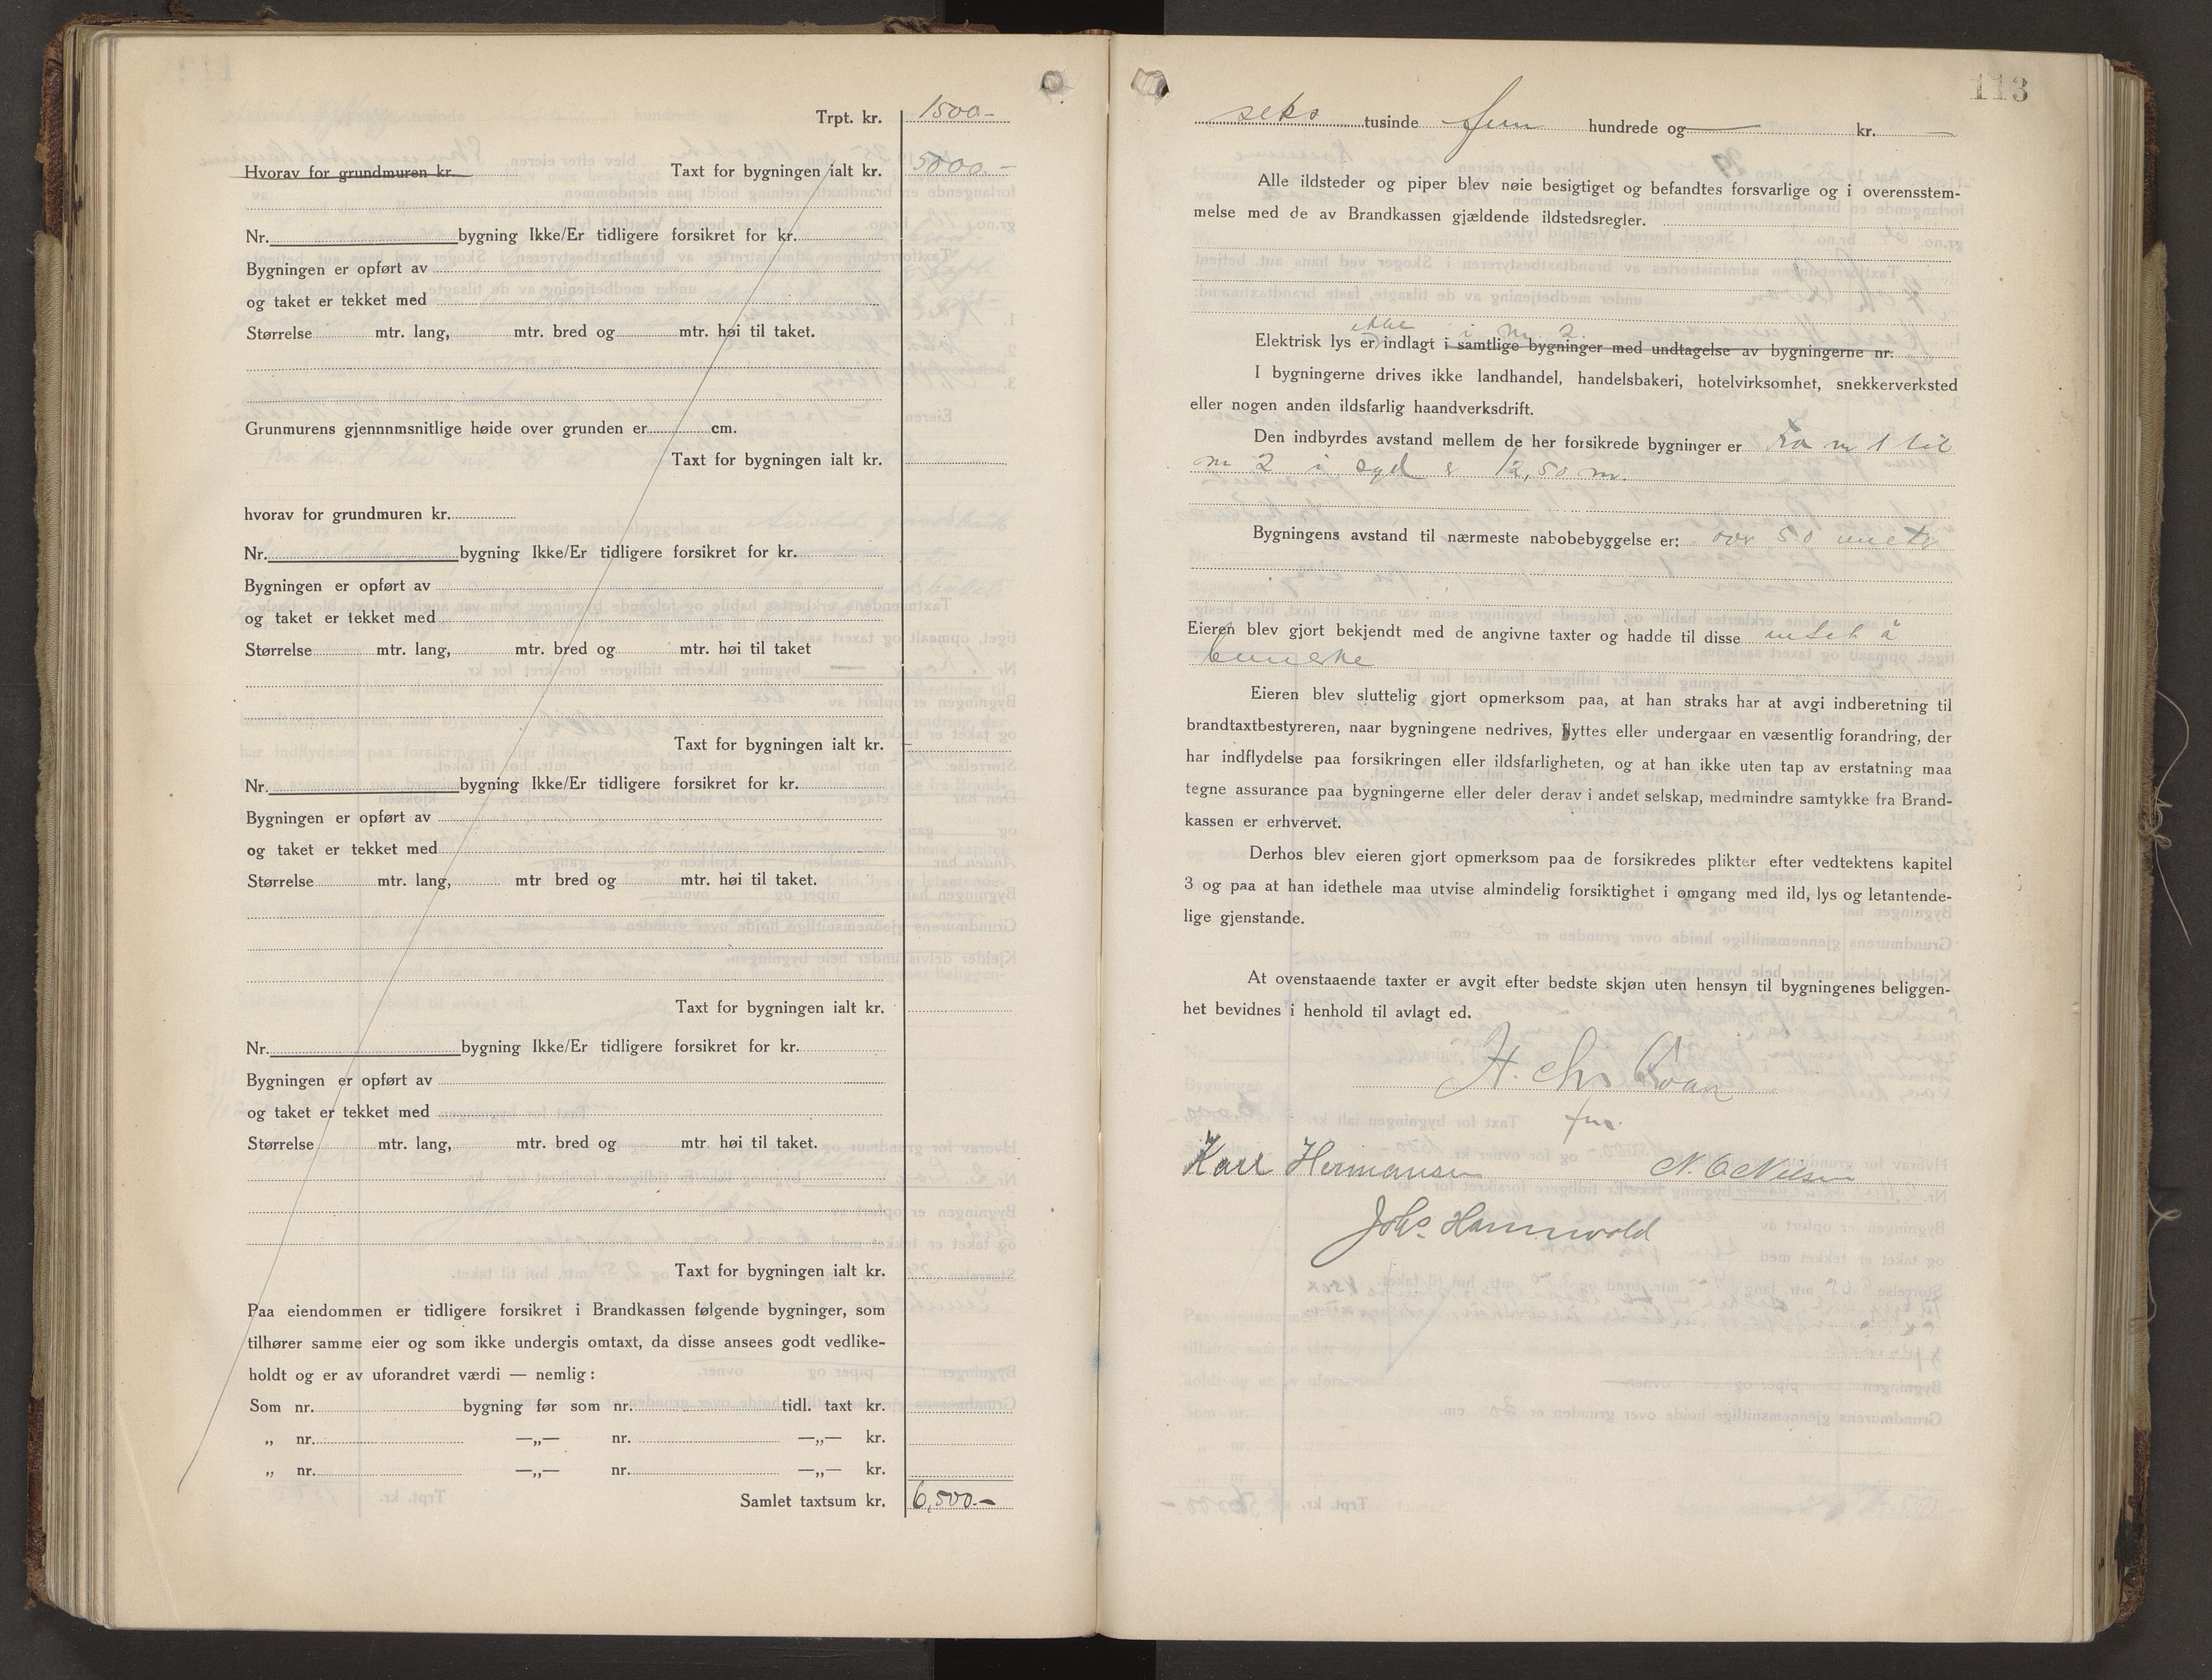 Trpt. kr. 1500.-
Hvorav for grundmuren kr. Taxt for bygningen ialt kr. 5000.-
Nr. bygning Ikke/Er tidligere forsikret for kr.
Bygningen er opført av
og taket er tekket med
Størrelse mtr. lang, mtr. bred og mtr. høi til taket.
Grunmurens gjennnmsnitlige høide over grunden er cm.
Taxt for bygningen ialt kr.
hvorav for grundmuren kr.
Nr. bygning Ikke/Er tidligere forsikret for kr.
Bygningen er opført av
og taket er tekket med
Størrelse mtr. lang, mtr. bred og mtr. høi til taket
Taxt for bygningen ialt kr.
Nr. bygning Ikke/Er tidligere forsikret for kr.
Bygningen er opført av
og taket er tekket med
Størrelse mtr. lang, mtr bred og mtr. høi til taket.
Taxt for bygningen ialt kr.
Nr. bygning Ikke/Er tidligere forsikret for kr.
Bygningen er opført av
og taket er tekket med
Størrelse mtr. lang, mtr. bred og mtr. høi til taket.
Taxt for bygningen ialt kr.
Paa eiendommen er tidligere forsikret i Brandkassen følgende bygninger, som
tilhører samme eier og som ikke undergis omtaxt, da disse ansees godt vedlike-
holdt og er av uforandret værdi — nemlig:
Som nr. bygning før som nr. tidl. taxt kr.
„ nr. —„— nr. —„— kr.
„ nr. —„— nr. —„— kr.
Samlet taxtsum kr. 6,500.-
113
seks tusinde fem hundrede og — kr. —
Alle ildsteder og piper blev nøie besigtiget og befandtes forsvarlige og i overensstem-
melse med de av Brandkassen gjældende ildstedsregler.
ikke i nr. 2.
Elektrisk lys er indlagt i samtlige bygninger med undtagelse av bygningerne nr.
I bygningerne drives ikke landhandel, handelsbakeri, hotelvirksomhet, snekkerverksted
eller nogen anden ildsfarlig haandverksdrift.
Den indbyrdes avstand mellem de her forsikrede bygninger er fra nr 1 til
nr 2 i syd er 12,50 m.
Bygningens avstand til nærmeste nabobebyggelse er: over 50 meter
Eieren blev gjort bekjendt med de angivne taxter og hadde til disse intet å
bemerke
Eieren blev sluttelig gjort opmerksom paa, at han straks har at avgi indberetning til
brandtaxtbestyreren, naar bygningene nedrives, flyttes eller undergaar en væsentlig forandring, der
har indflydelse paa forsikringen eller ildsfarligheten, og at han ikke uten tap av erstatning maa
tegne assurance paa bygningerne eller deler derav i andet selskap, medmindre samtykke fra Brand-
kassen er erhvervet.
Derhos blev eieren gjort opmerksom paa de forsikredes plikter efter vedtektens kapitel
3 og paa at han idethele maa utvise almindelig forsiktighet i omgang med ild, lys og letantende-
lige gjenstande.
At ovenstaaende taxter er avgit efter bedste skjøn uten hensyn til bygningenes beliggen-
het bevidnes i henhold til avlagt ed.
H. Chr Kvan
fm.
Karl Hermansen N. O Nilsen
Johs. Hamnvold